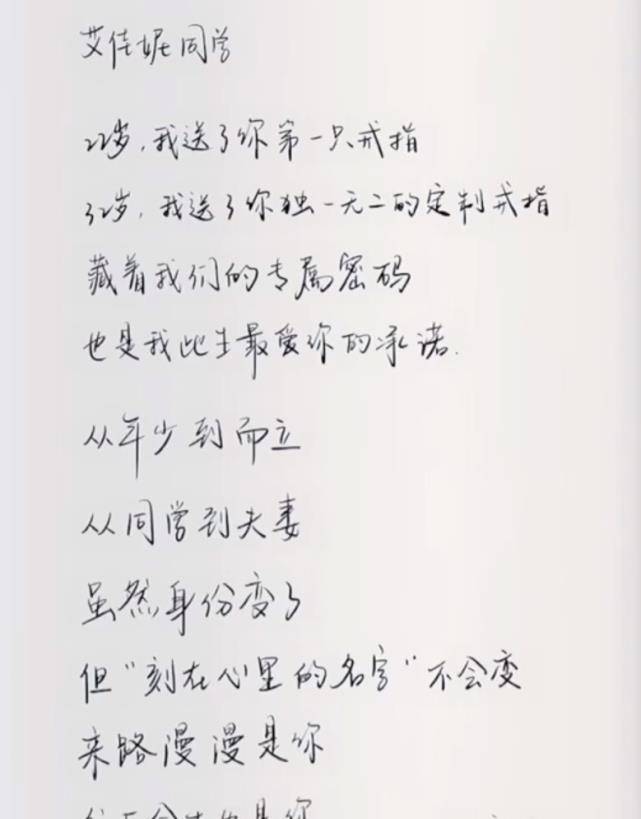 艾佳妮同学
22岁，我送了你第一只戒指
32岁，我送了你独一无二的定制戒指
藏着我们的专属密码
也是我此生最爱你的承诺.
从年少到而立
从同学到夫妻
虽然身份变了
但“刻在心里的名字”不会变
来路漫漫是你
是你